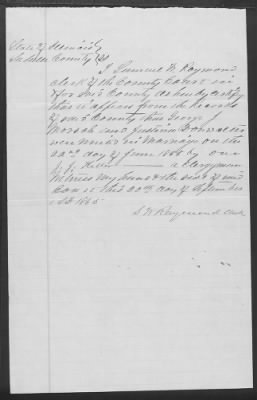 State of Illinois
La Salle County } ss
I Samuel W Raymond
clerk of the County Court in
& for said County do hereby certify
that it appears from the records
of said County that George J
and Justina
were united in marriage on the
day of June 18 by one
J. J. a Clergyman
Witness my hand & the seal of said
Court this 20th day of September
AD 1865
S W Raymond Clerk